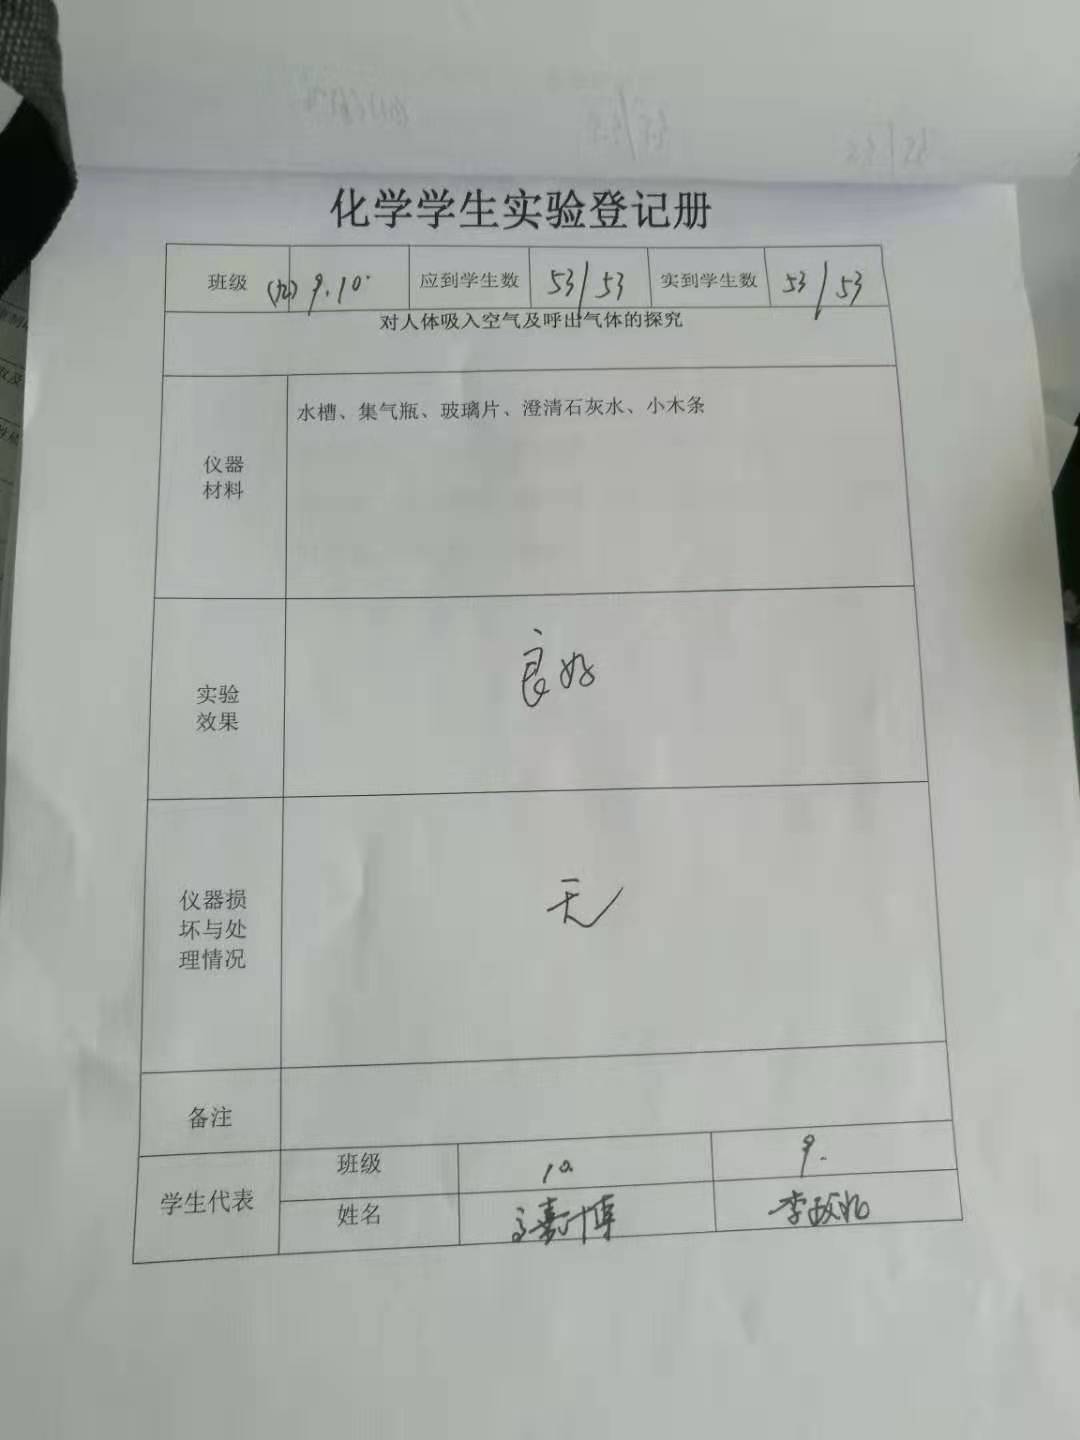 化学学生实验登记册
班级 (九) 9.10. 应到学生数 53/53 实到学生数 53/53
对人体吸入空气及呼出气体的探究
仪器
材料
水槽、集气瓶、玻璃片、澄清石灰水、小木条
实验
效果
良好
仪器损
坏与处
理情况
无
备注
学生代表
班级 10 9.
姓名